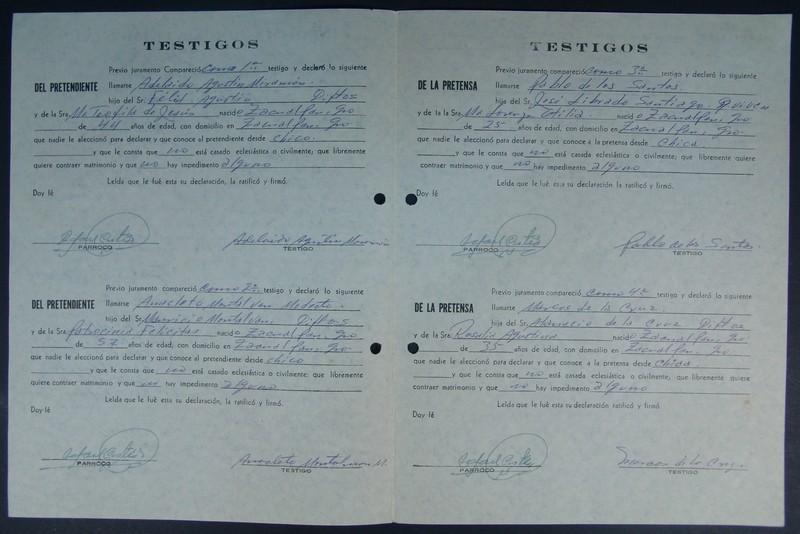 TESTIGOS
Previo juramento Compareció Como 1er testigo y declaró lo siguiente
DEL PRETENDIENTE llamarse Adelaido Agustin Miramón.
hijo del Sr. Felix Agustin Diftos
y de la Sra. Ma Teofila de Jesús nació Zacualpan, Gro
de 44 años de edad, con domicilio en Zacualpan, Gro.
que nadie le aleccionó para declarar y que conoce al pretendiente desde chico.
y que le consta que no está casado eclesiástica o civilmente; que libremente
quiere contraer matrimonio y que no hay impedimento alguno
Leída que le fué esta su declaración, la ratificó y firmó.
Doy fé
PARROCO
Adelaido Agustin
TESTIGO
Previo juramento compareció Como 2o testigo y declaró lo siguiente
DEL PRETENDIENTE llamarse Anacleto Montalvan Modesto.
hijo del Sr. Mauricio Montalvan Diftos
y de la Sra. Patrocinia Felicitas nació Zacualpan, Gro
de 57 años de edad, con domicilio en Zacualpan, Gro.
que nadie le aleccionó para declarar y que conoce al pretendiente desde chico
y que le consta que no está casado eclesiástica o civilmente: que libremente
quiere contraer matrimonio y que no hay impedimento alguno
Leída que le fué esta su declaración, la ratificó y firmó.
Doy fé
PARROCO
Anacleto Montalvan M.
TESTIGO
TESTIGOS
Previo juramento compareció Como 3o testigo y declaró lo siguiente
DE LA PRETENSA llamarse Pablo de los Santos.
hijo del Sr. José Librado Santiago
y de la la Sra. Ma Lorenza Otilia nació Zacualpan, Gro
de 25 años de edad, con domicilio en Zacualpan, Gro.
que nadie le aleccionó para declarar y que conoce á la pretensa desde Chica.
y que le consta que no está casada eclesiástica o civilmente; que libremente quiere
contraer matrimonio y que no hay impedimento alguno
Leída que le fué esta su declaración la ratificó y firmó.
Doy fé
PARROCO
Pablo de los Santos.
TESTIGO
Previo juramento compareció Como 4o testigo y declaró lo siguiente
DE LA PRETENSA llamarse Marcos de la Cruz.
hijo del Sr. Atanacio de la Cruz Diftos
y de la Sra. Rosalia Agustina nació Zacualpan, Gro
de 35 años de edad, con domicilio en Zacualpan, Gro.
que nadie le aleccionó para declarar y que conoce a la pretensa desde Chica.
y que le consta que no está casada eclesiástica o civilmente, que libremente quiere
contraer matrimonio y que no hay impedimento alguno
Leída que le fué esta su declaración ratificó y firmó.
Doy fé
PARROCO
de la Cruz.
TESTIGO